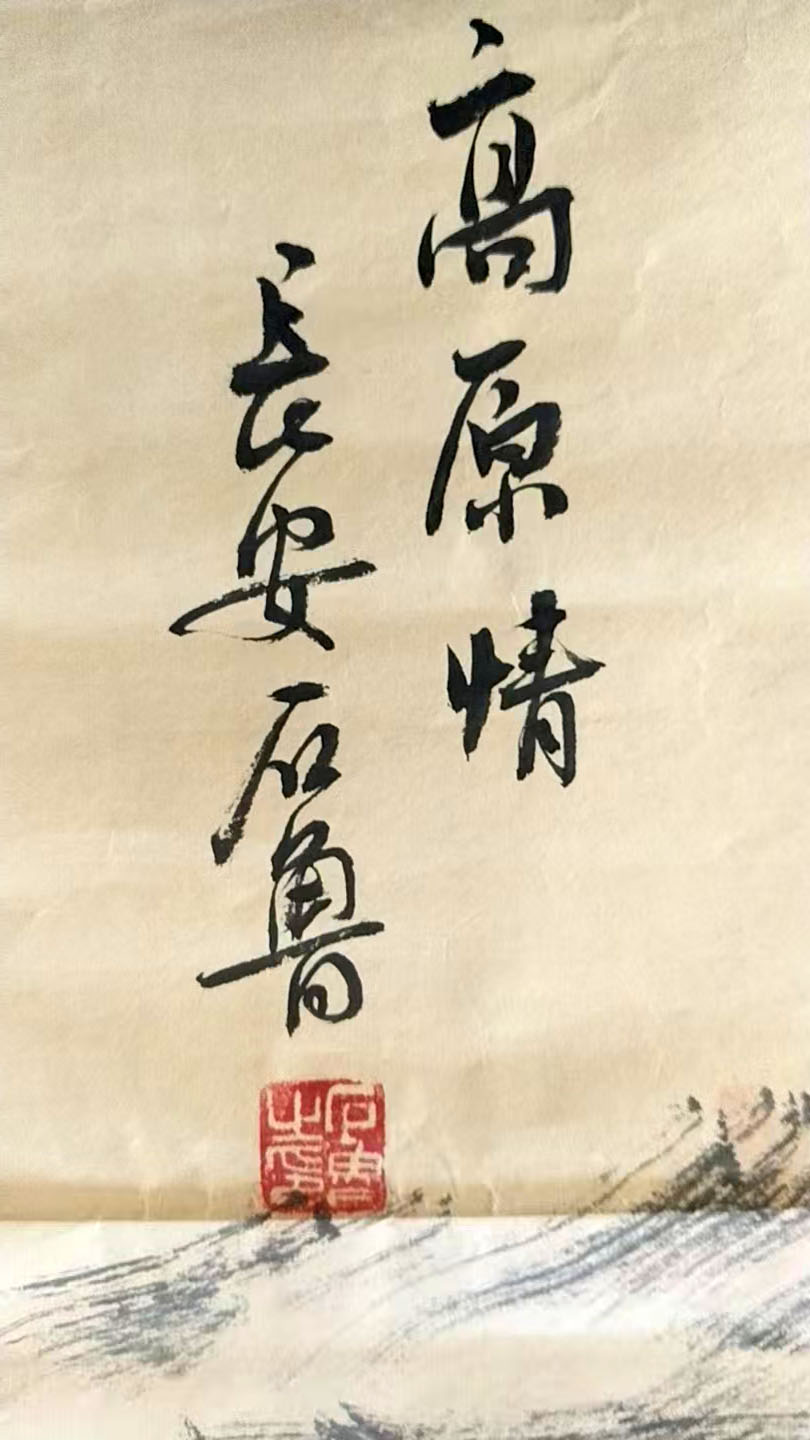 高原情
長安石魯
石魯之鉨